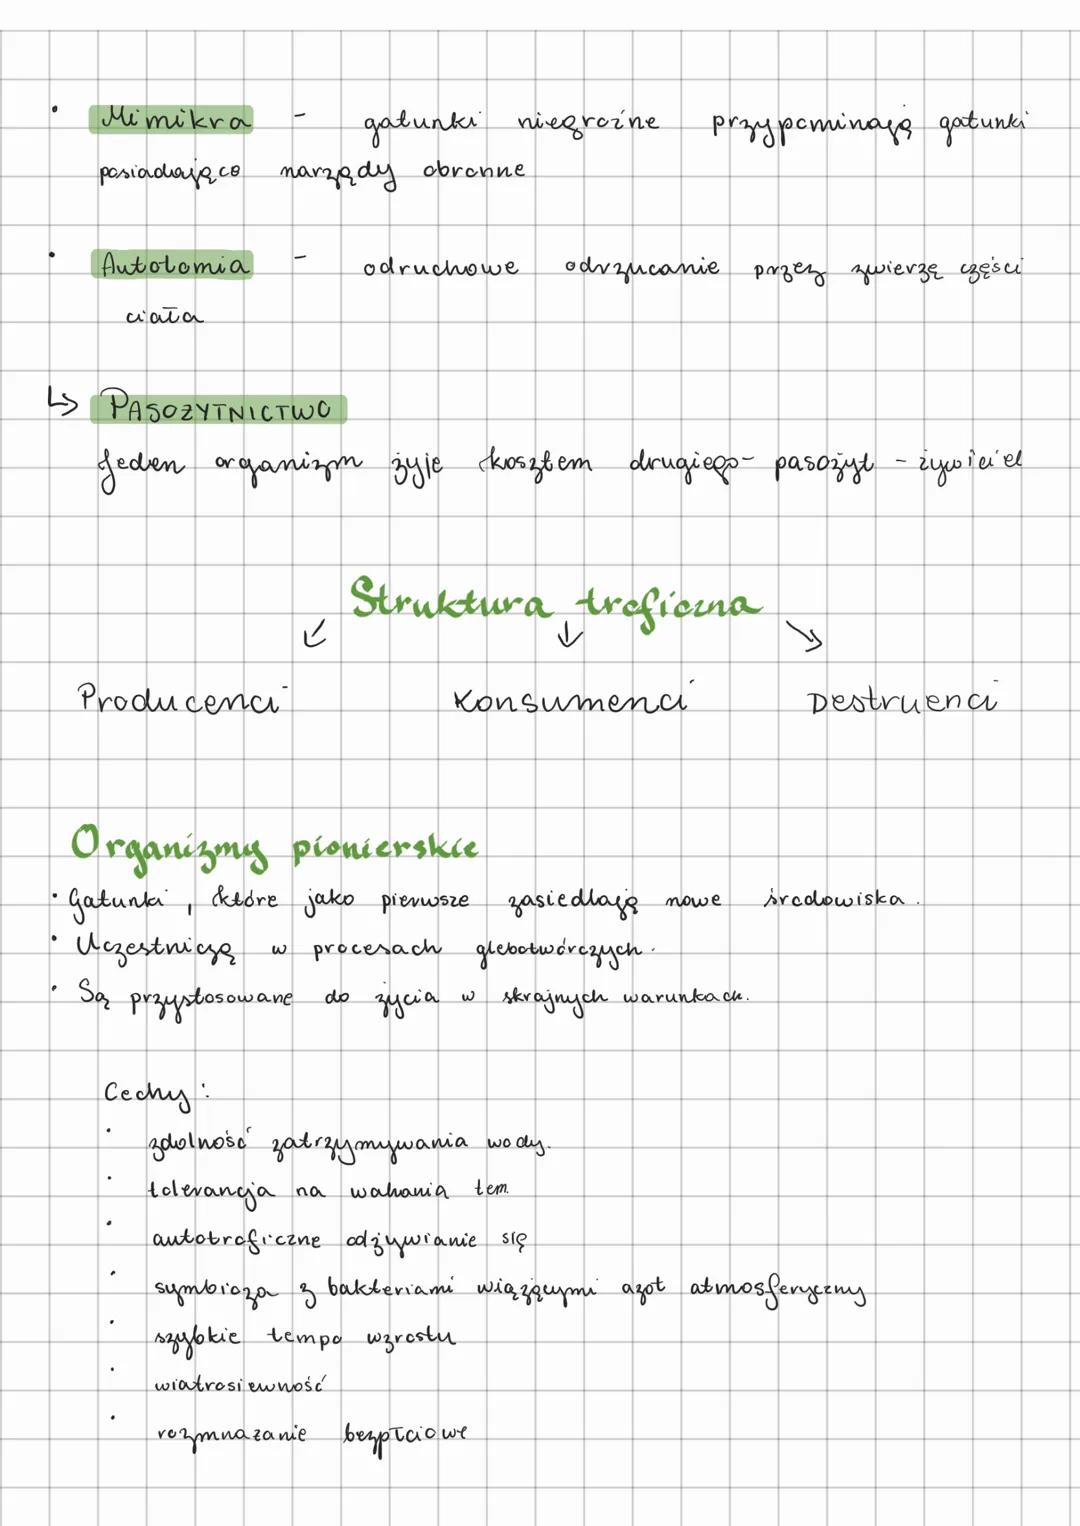 • Mimikra - gatunki niegroźne przypominają gatunki
posiadające narządy obronne
• Autotomia - odruchowe odrzucanie przez zwierzę części
ciała
↳ PASOŻYTNICTWO
Jeden organizm żyje kosztem drugiego - pasożyt - żywiciel
Struktura troficzna
↙ ↓ ↘
Producenci Konsumenci Destruenci
Organizmy pionierskie
• Gatunki, które jako pierwsze zasiedlają nowe środowiska.
• Uczestniczą w procesach glebotwórczych.
• Są przystosowane do życia w skrajnych warunkach.
Cechy:
• zdolność zatrzymywania wody.
• tolerancja na wahania tem.
• autotroficzne odżywianie się
• symbioza z bakteriami wiążącymi azot atmosferyczny
• szybkie tempo wzrostu
• wiatrosiewność
• rozmnażanie bezpłciowe